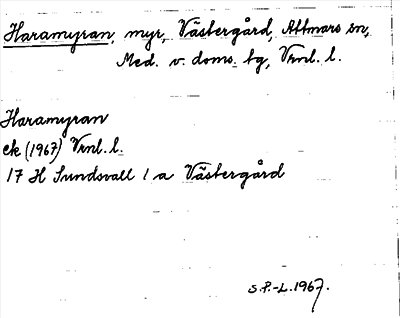 Haramyran, myr, Västergård, Attmars sn,
Med. v. doms. tg, Vrnl. l.
Haramyran
ek (1967) Vrnl. l.
17 H Sundsvall 1 a Västergård
S.P.-L. 1967.